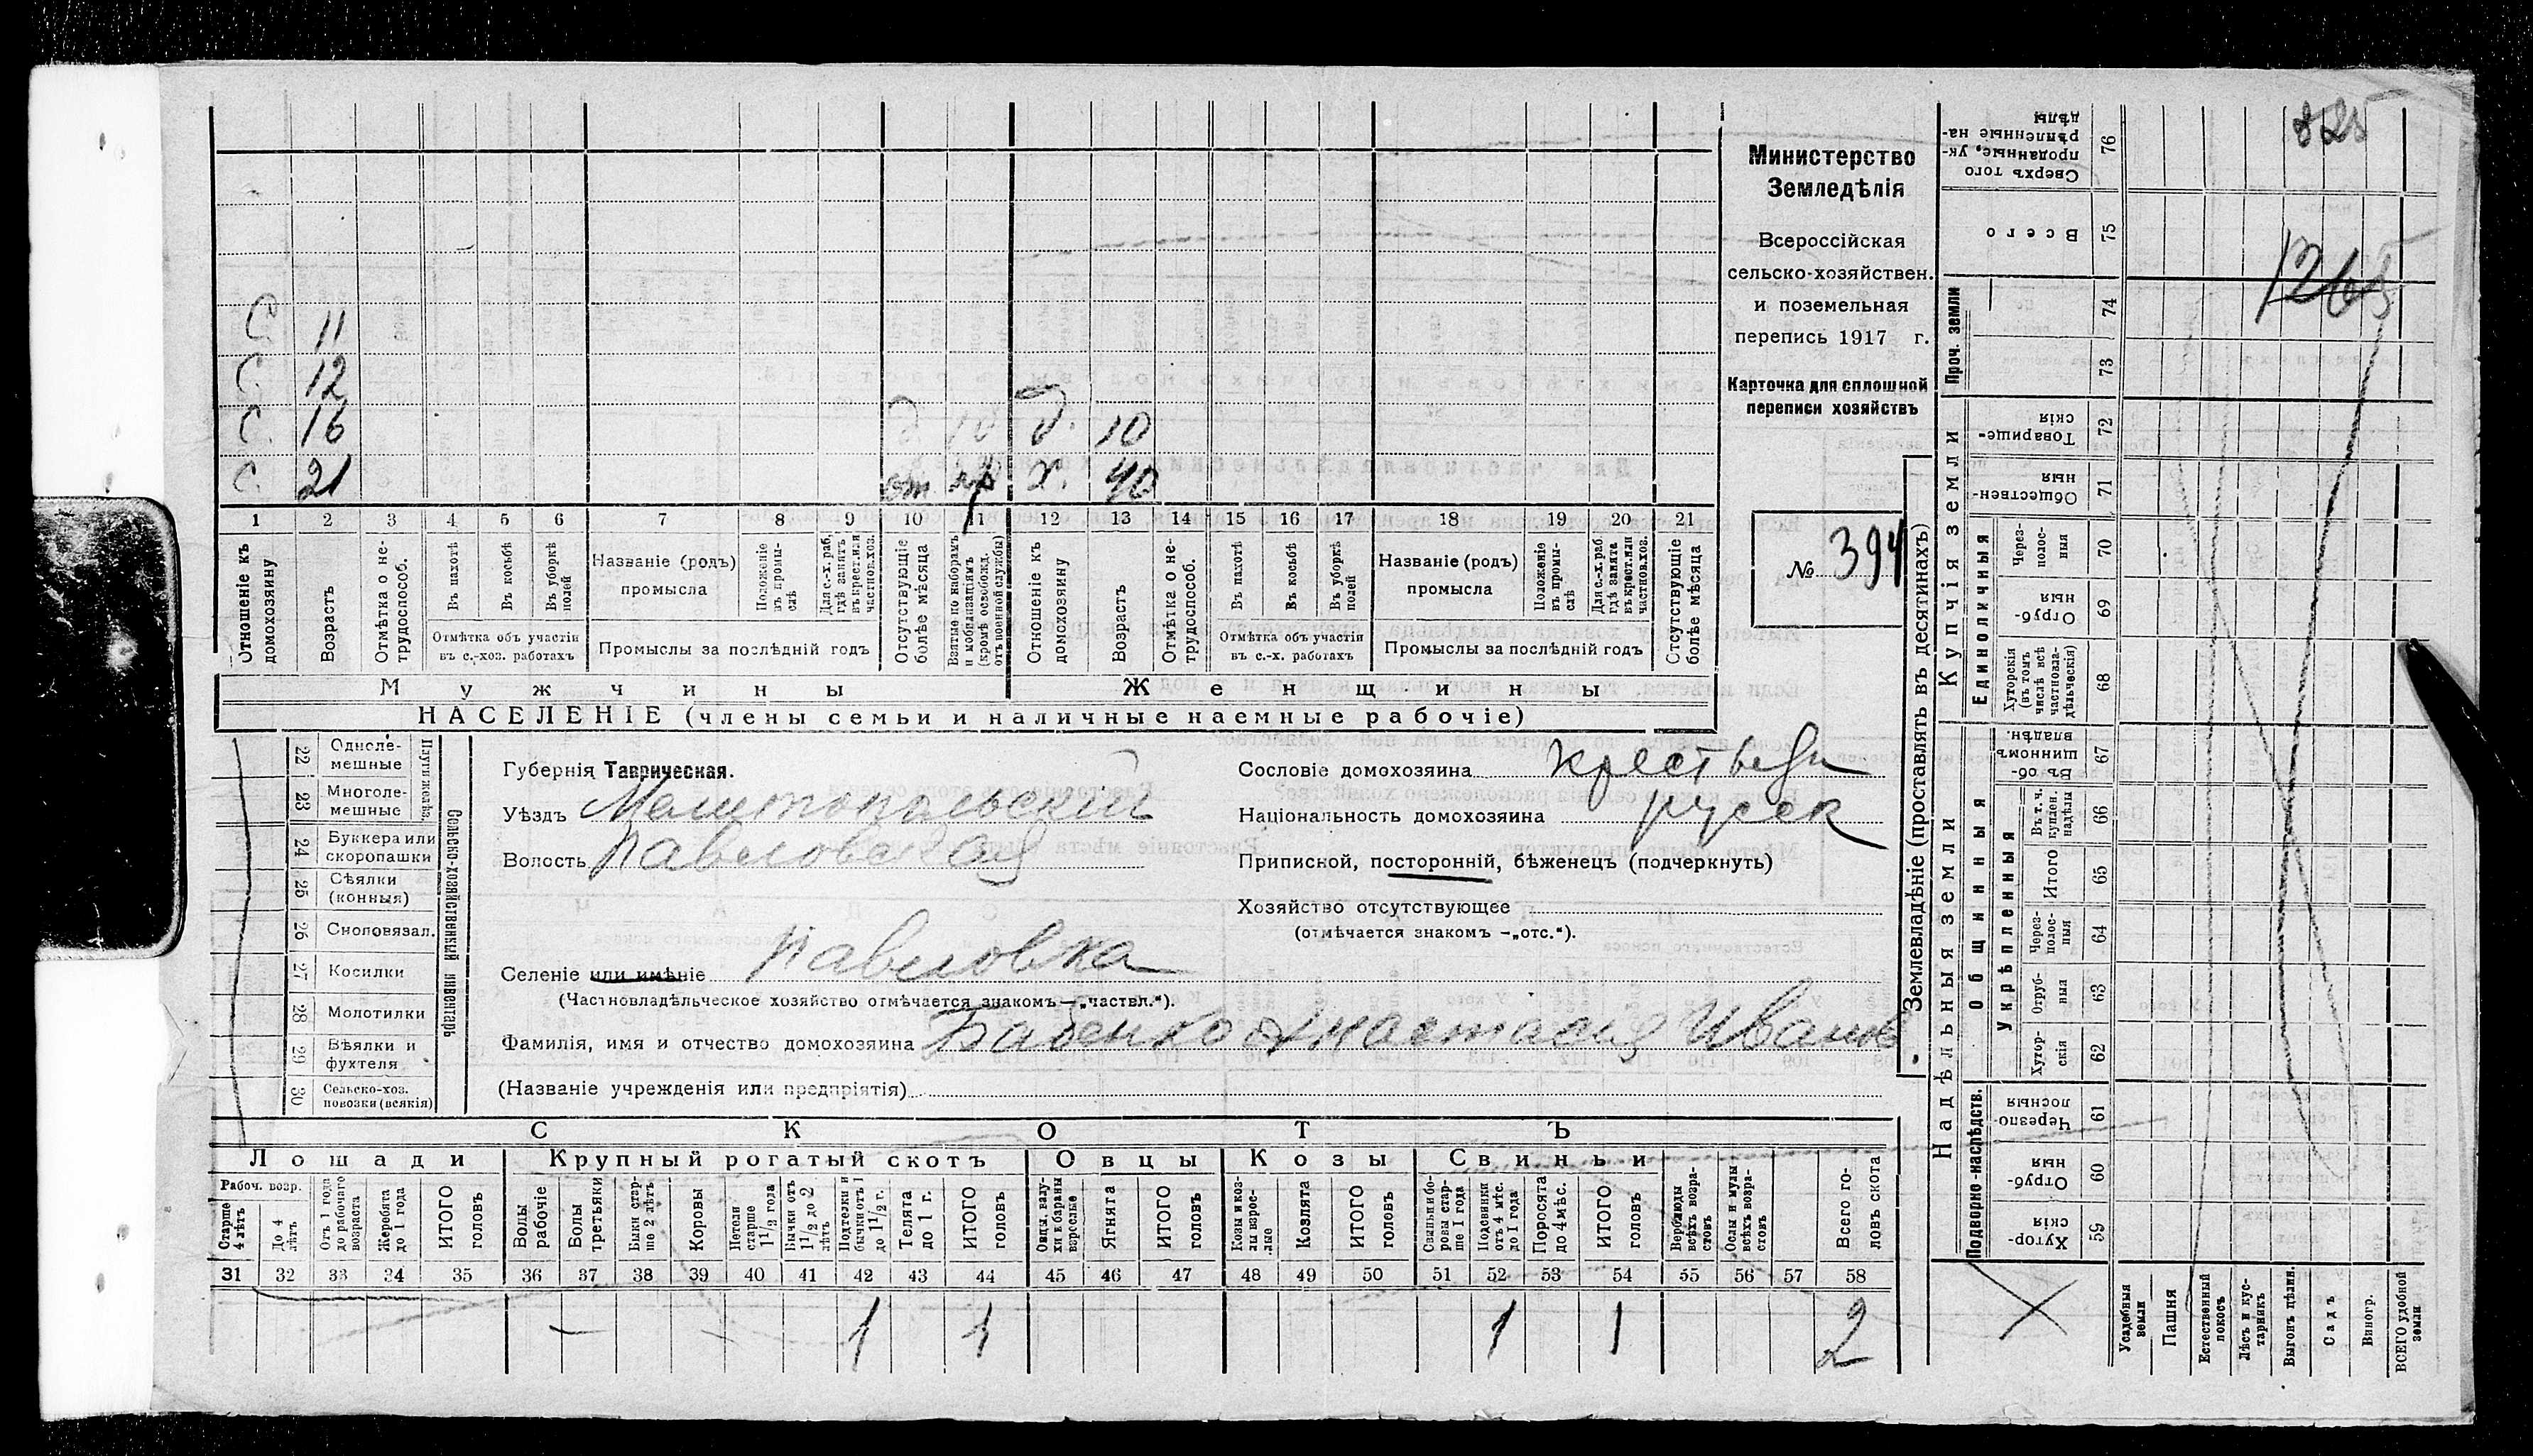 825
1265
Министерство
Земледѣлія
Всероссійская
сельско-хозяйствен.
и поземельная
перепись 1917 г.
Карточка для сплошной
переписи хозяйствъ
№ 394
С 11
С. 12
С. 16 д. 10
С. 21 от Х. 40
1 2 3 4 5 6 7 8 9 10 11 12 13 14 15 16 17 18 19 20 21
Отношеніе къ домохозяину
Возрастъ
Отмѣтка о не-трудоспособ.
Въ пахотѣ
Въ косьбѣ
Въ уборкѣ полей
Отмѣтка объ участіи
въ с.-хоз. работахъ
Названіе (родъ)
промысла
Положеніе въ промы-слѣ
Для с.-х. раб. гдѣ занятъ въ крест. или частнов. хоз.
Промыслы за послѣдній годъ
Отсутствующіе болѣе мѣсяца
Взятые по наборамъ и мобилизаціямъ (кромѣ освобожд. отъ военной службы)
Отношеніе къ домохозяину
Возрастъ
Отмѣтка о не-трудоспособ.
Въ пахотѣ
Въ косьбѣ
Въ уборкѣ полей
Отмѣтка объ участіи
въ с.-х. работахъ
Названіе (родъ)
промысла
Положеніе въ промы-слѣ
Для с.-х. раб. гдѣ занята въ крест. или частнов. хоз.
Промыслы за послѣдній годъ
Отсутствующіе болѣе мѣсяца
Мужчины Женщины
НАСЕЛЕНІЕ (члены семьи и наличные наемные рабочіе)
Сельско-хозяйственный инвентарь
Плуги желѣз.
22 Одноле-мешные
23 Многоле-мешные
24 Буккера или скоропашки
25 Сѣялки (конныя)
26 Сноповязал.
27 Косилки
28 Молотилки
29 Вѣялки и фухтеля
30 Сельско-хоз. повозки (всякія)
Губернія Таврическая.
Уѣздъ Мелитопольскій
Волость Павловская
Селеніе или имѣніе Павловка
(Частновладѣльческое хозяйство отмѣчается знакомъ—„частвл.“).
Фамилія, имя и отчество домохозяина Бабенко Анастасія Иванов
(Названіе учрежденія или предпріятія)
Сословіе домохозяина крестьян
Національность домохозяина русск
Приписной, посторонній, бѣженецъ (подчеркнуть)
Хозяйство отсутствующее
(отмѣчается знакомъ —„отс.“).
СКОТЪ
Лошади Крупный рогатый скотъ Овцы Козы Свиньи
Рабоч. возр.
Старше 4 лѣтъ
До 4 лѣтъ
Отъ 1 года до рабочаго возраста
Жеребята до 1 года
ИТОГО головъ
Волы рабочіе
Волы третьяки
Быки стар-ше 2 лѣтъ
Коровы
Нетели старше 1 1/2 года
Бычки отъ 1 1/2 до 2 лѣтъ
Подтелки и бычки отъ 1 до 1 1/2 г.
Телята до 1 г.
ИТОГО головъ
Овцы, валу-хи и бараны взрослые
Ягнята
ИТОГО головъ
Козы и коз-лы взрос-лые
Козлята
ИТОГО головъ
Свиньи и бо-ровы стар-ше 1 года
Подсвинки отъ 4 мѣс. до 1 года
Поросята до 4 мѣс.
ИТОГО головъ
Верблюды всѣхъ возра-стовъ
Ослы и мулы всѣхъ возра-стовъ
Всего го-ловъ скота
31 32 33 34 35 36 37 38 39 40 41 42 43 44 45 46 47 48 49 50 51 52 53 54 55 56 57 58
1 1 1 1 2
Землевладѣніе (проставлять въ десятинахъ)
Купчія земли
Надѣльныя земли
Проч. земли
Единоличныя
Общинныя
Укрѣпленныя
Подворно-наслѣдств.
Сверхъ того проданные, ук-рѣпленные на-дѣлы 76
Всего 75
74
73
Товарище-скія 72
Обществен-ныя 71
Через-полос-ныя 70
Отруб-ныя 69
Хуторскія (въ томъ числѣ всѣ частновла-дѣльческія) 68
Въ об-щинномъ владѣн. 67
Въ т. ч. куплен. надѣлы 66
Итого 65
Через-полос-ныя 64
Отруб-ныя 63
Хутор-скія 62
Черезпо-лосныя 61
Отруб-ныя 60
Хутор-скія 59
Усадебныя земли
Пашня
Естественный покосъ
Лѣсъ и кус-тарникъ
Выгонъ цѣлин.
Садъ
Виногр.
ВСЕГО удобной земли